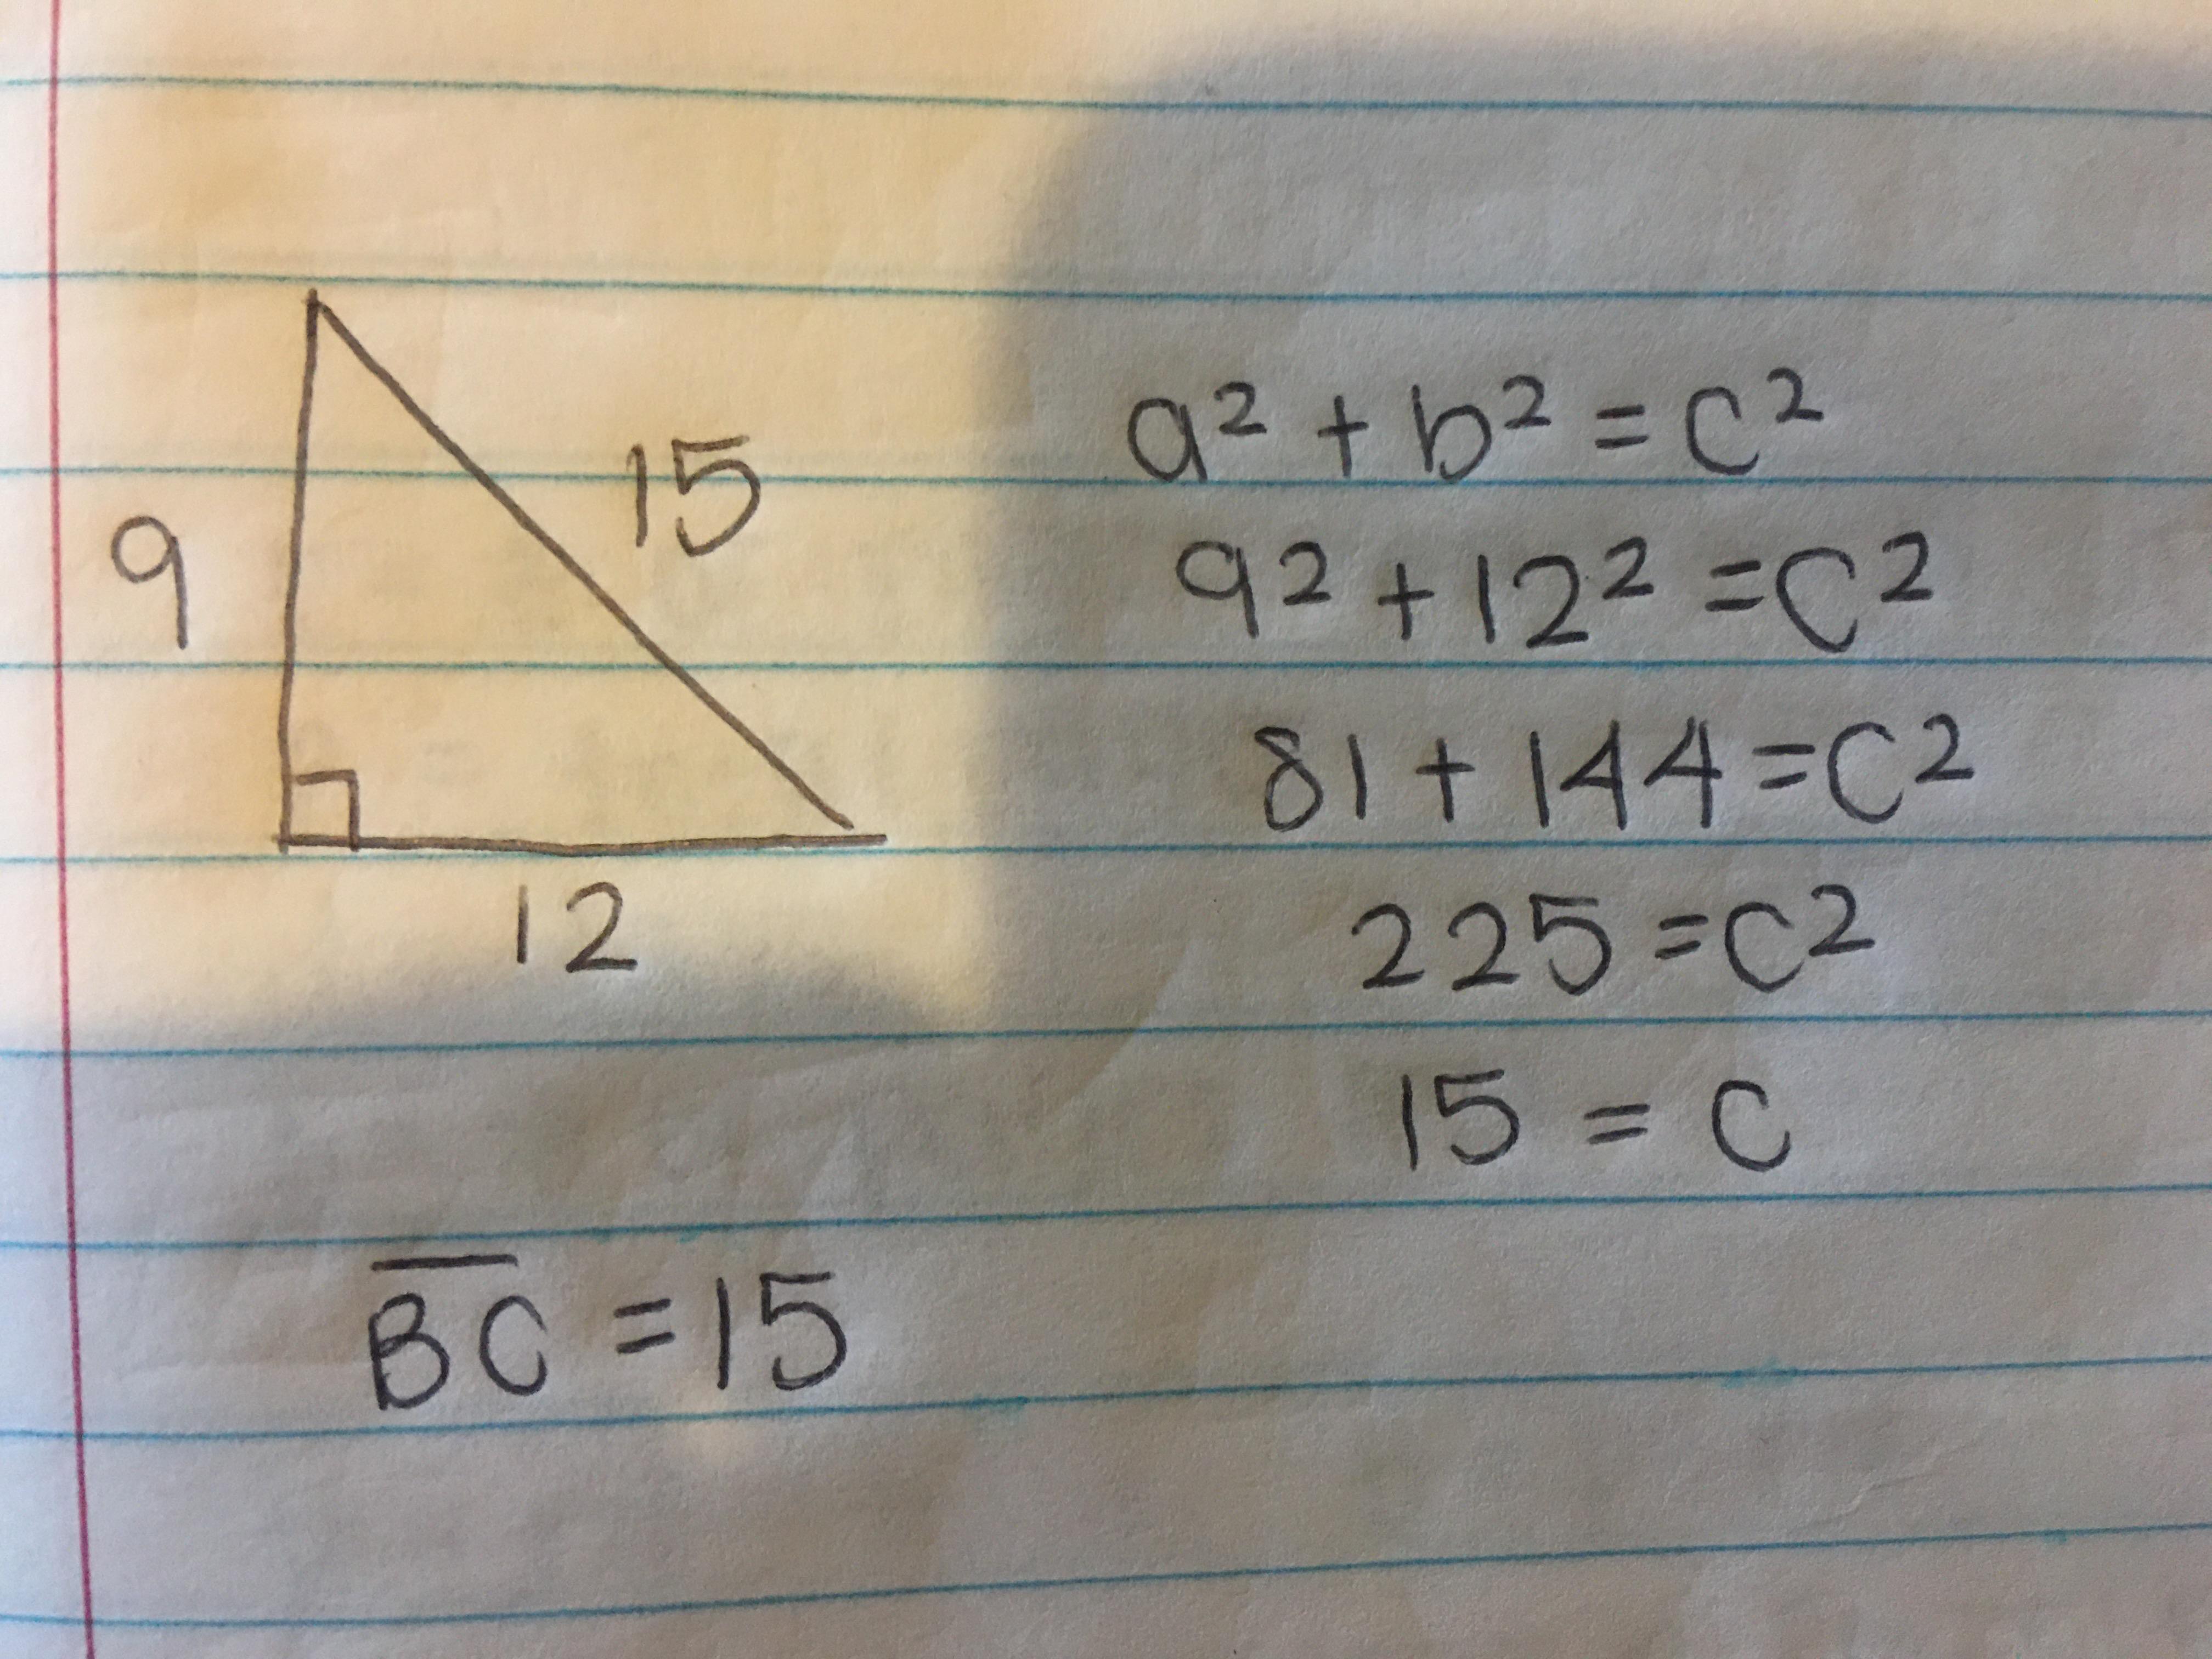 9
15
12
a² + b² = c²
9² + 12² = c²
81 + 144 = c²
225 = c²
15 = c
B̅C̅ = 15